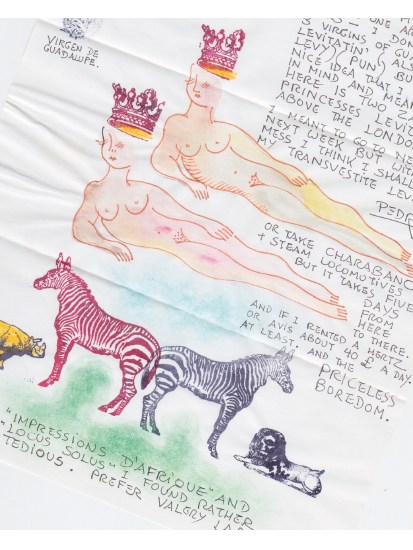 VIRGEN DE
GUADALUPE.
ONE AR
I DON
3 VIRGINS OF ALS
LEVITATIN' (GUAL
LEVY), PUN BUT
NICE IDEA THAT I
NI MIND AND MEAN
HERE IS TWO Z
PRINCESSES LEVI
ABOVE THE LONDO
I MEANT TO GO TO NI
NEXT WEEK BUT WITH
MESS, I THINK I SHALL
MY TRANSVESTITE LEV
PEDR
OR TAKE CHARABANC
+ STEAM LOCOMOTIVES
BUT IT TAKES FIVE
DAYS
FROM
HERE
TO THERE.
AND IF I RENTED A HERTZ
OR AVIS ABOUT 40 £ A DAY
AT LEAST. AND THE
PRICELESS
BOREDOM.
"IMPRESSIONS D'AFRIQUE" AND
"LOCUS SOLUS" I FOUND RATHER
TEDIOUS. PREFER VALERY LAR